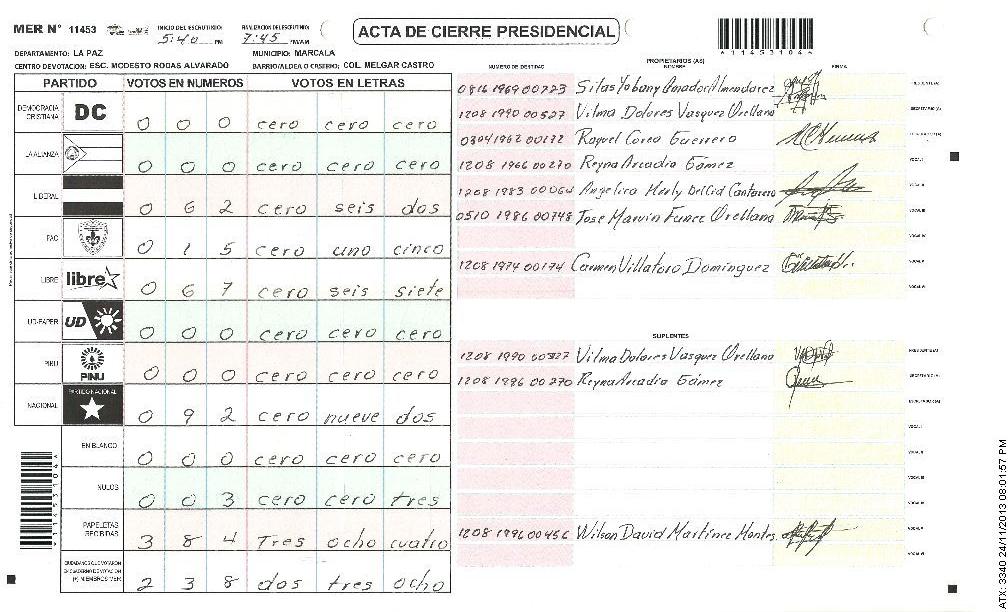 MER N° 11453
INICIO DEL ESCRUTINIO: 5:40 PM
FINALIZACION ESCRUTINIO: 7:45 PM/AM
ACTA DE CIERRE PRESIDENCIAL
11453104
DEPARTAMENTO: LA PAZ
MUNICIPIO: MARCALA
CENTRO DE VOTACION: ESC. MODESTO RODAS ALVARADO
BARRIO/ALDEA O CASERIO: COL. MELGAR CASTRO
PARTIDO VOTOS EN NUMEROS VOTOS EN LETRAS
DEMOCRACIA CRISTIANA DC 0 0 0 cero cero cero
LA ALIANZA 0 0 0 cero cero cero
LIBERAL 0 6 2 cero seis dos
PAC 0 1 5 cero uno cinco
LIBRE libre 0 6 7 cero seis siete
UD-FAPER UD 0 0 0 cero cero cero
PINU PINU 0 0 0 cero cero cero
NACIONAL PARTIDO NACIONAL 0 9 2 cero nueve dos
EN BLANCO 0 0 0 cero cero cero
NULOS 0 0 3 cero cero tres
PAPELETAS RECIBIDAS 3 8 4 Tres ocho cuatro
CIUDADANOS QUE VOTARON EN CUADERNO DE VOTACION (+) MIEMBROS MER 2 3 8 dos tres ocho
PROPIETARIOS (AS)
NUMERO DE IDENTIDAD NOMBRE FIRMA
0816 1969 00723 Silas Yobany Amador Almendarez PRESIDENTE(A)
1208 1990 00527 Vilma Dolores Vasquez Orellana SECRETARIO(A)
0304 1962 00172 Raquel Correa Guerrero
1208 1966 00270 Reyna Arcadia Gómez VOCAL I
1208 1983 00064 Angelica Herly Del Cid Cantarero VOCAL II
0510 1986 00748 Jose Marvin Funez Orellana VOCAL III
VOCAL IV
1208 1974 00174 Carmen Villatoro Dominguez VOCAL V
VOCAL VI
SUPLENTES
1208 1990 00527 Vilma Dolores Vasquez Orellana PRESIDENTE(A)
1208 1996 00270 Reyna Arcadia Gómez SECRETARIO(A)
ESCRUTADOR(A)
VOCAL I
VOCAL II
VOCAL III
VOCAL IV
1208 1996 00456 Wilson David Martinez Montes VOCAL V
VOCAL VI
11453104
ATX: 3340 24/11/2013 08:01:57 PM